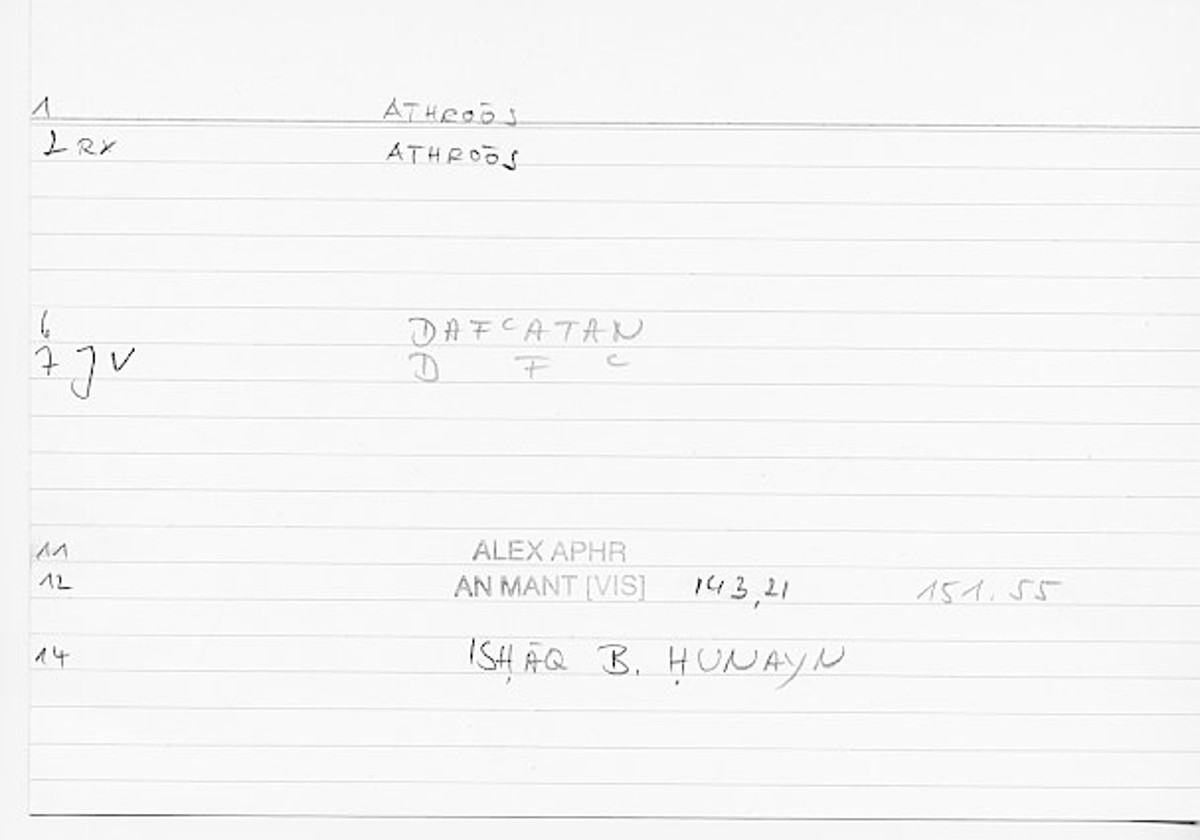 1 ATHROŌS
2 RX ATHROŌS
6 DAFᶜATAN
7 JV D F ᶜ
11 ALEX APHR
12 AN MANT [VIS] 143,21 151.55
14 ISḤĀQ B. ḤUNAYN